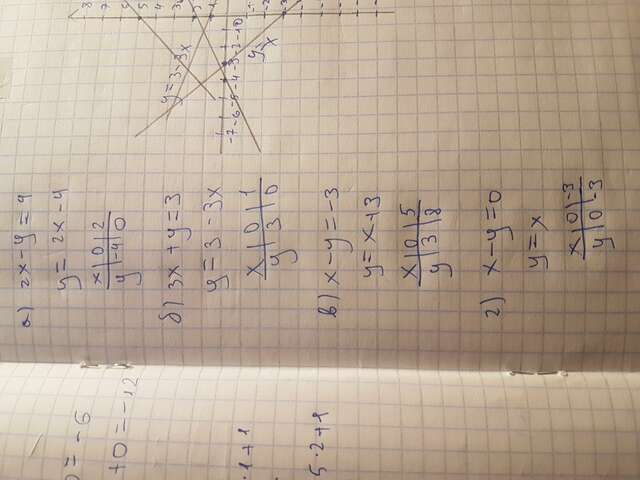 а) 2x - y = 4
y = 2x - 4
x | 0 | 2
y | -4 | 0
б) 3x + y = 3
y = 3 - 3x
x | 0 | 1
y | 3 | 0
в) x - y = -3
y = x + 3
x | 0 | 5
y | 3 | 8
г) x - y = 0
y = x
x | 0 | -3
y | 0 | -3
y = 3 - 3x
y x
= -6
+ 0 = -12
· 1 + 1
5 · 2 + 1